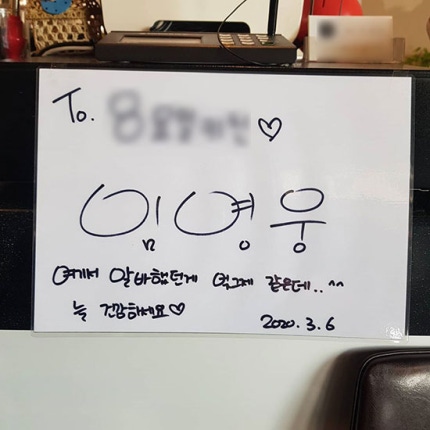 To. ♡
임영웅
여기서 알바했던게 엊그제 같은데..^^
늘 건강하세요♡ 2020. 3. 6